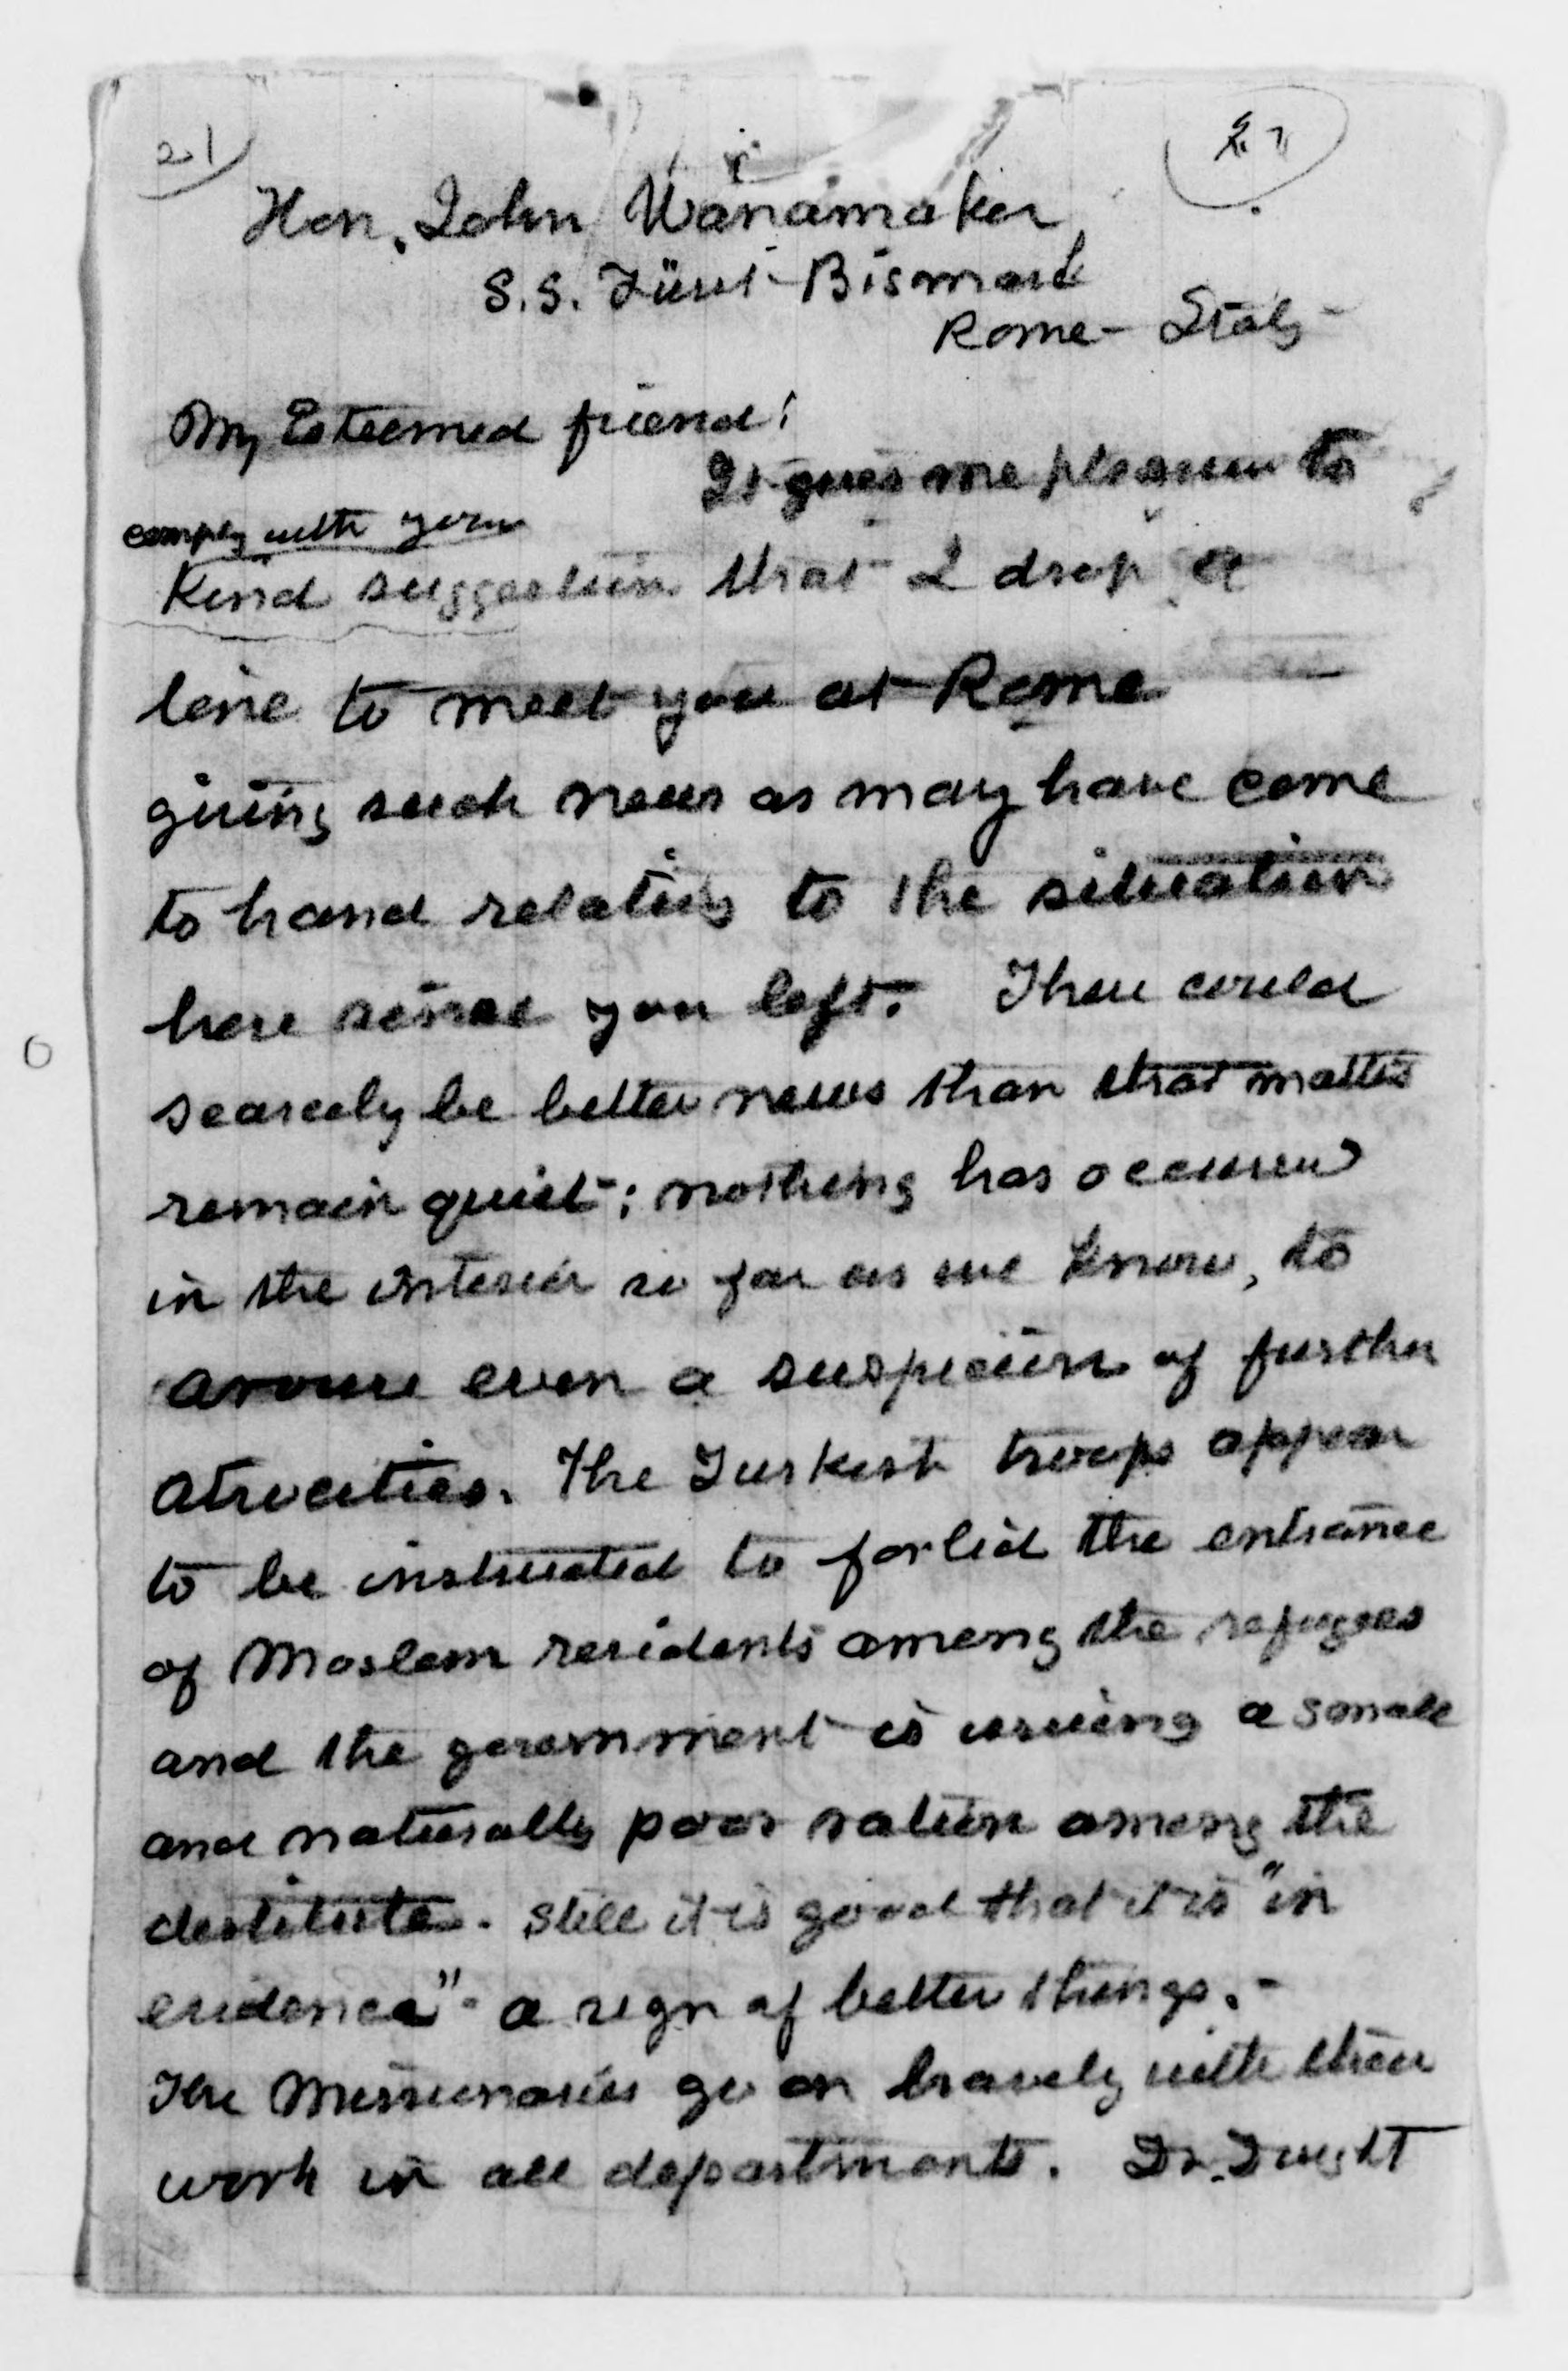 21
Hon. John Wanamaker
S.S. Fürst Bismark
Rome - Italy -
My Esteemed friend!
It gives me pleasure to
comply with your
Kind suggestion that I drop a
line to meet you at Rome
giving such news as may have come
to hand relating to the situation
here since you left. There could
scarcely be better news than that matters
remain quiet; nothing has occurred
in the interior so far as we know, to
arouse even a suspicion of further
atrocities. The Turkish troops appear
to be instructed to forbid the entrance
of Moslem residents among the refugees
and the government is issuing a small
and naturally poor ration among the
destitute. Still it is good that it is "in
evidence" - a sign of better things. -
The Missionaries go on bravely with their
work in all departments. Dr. Dwight